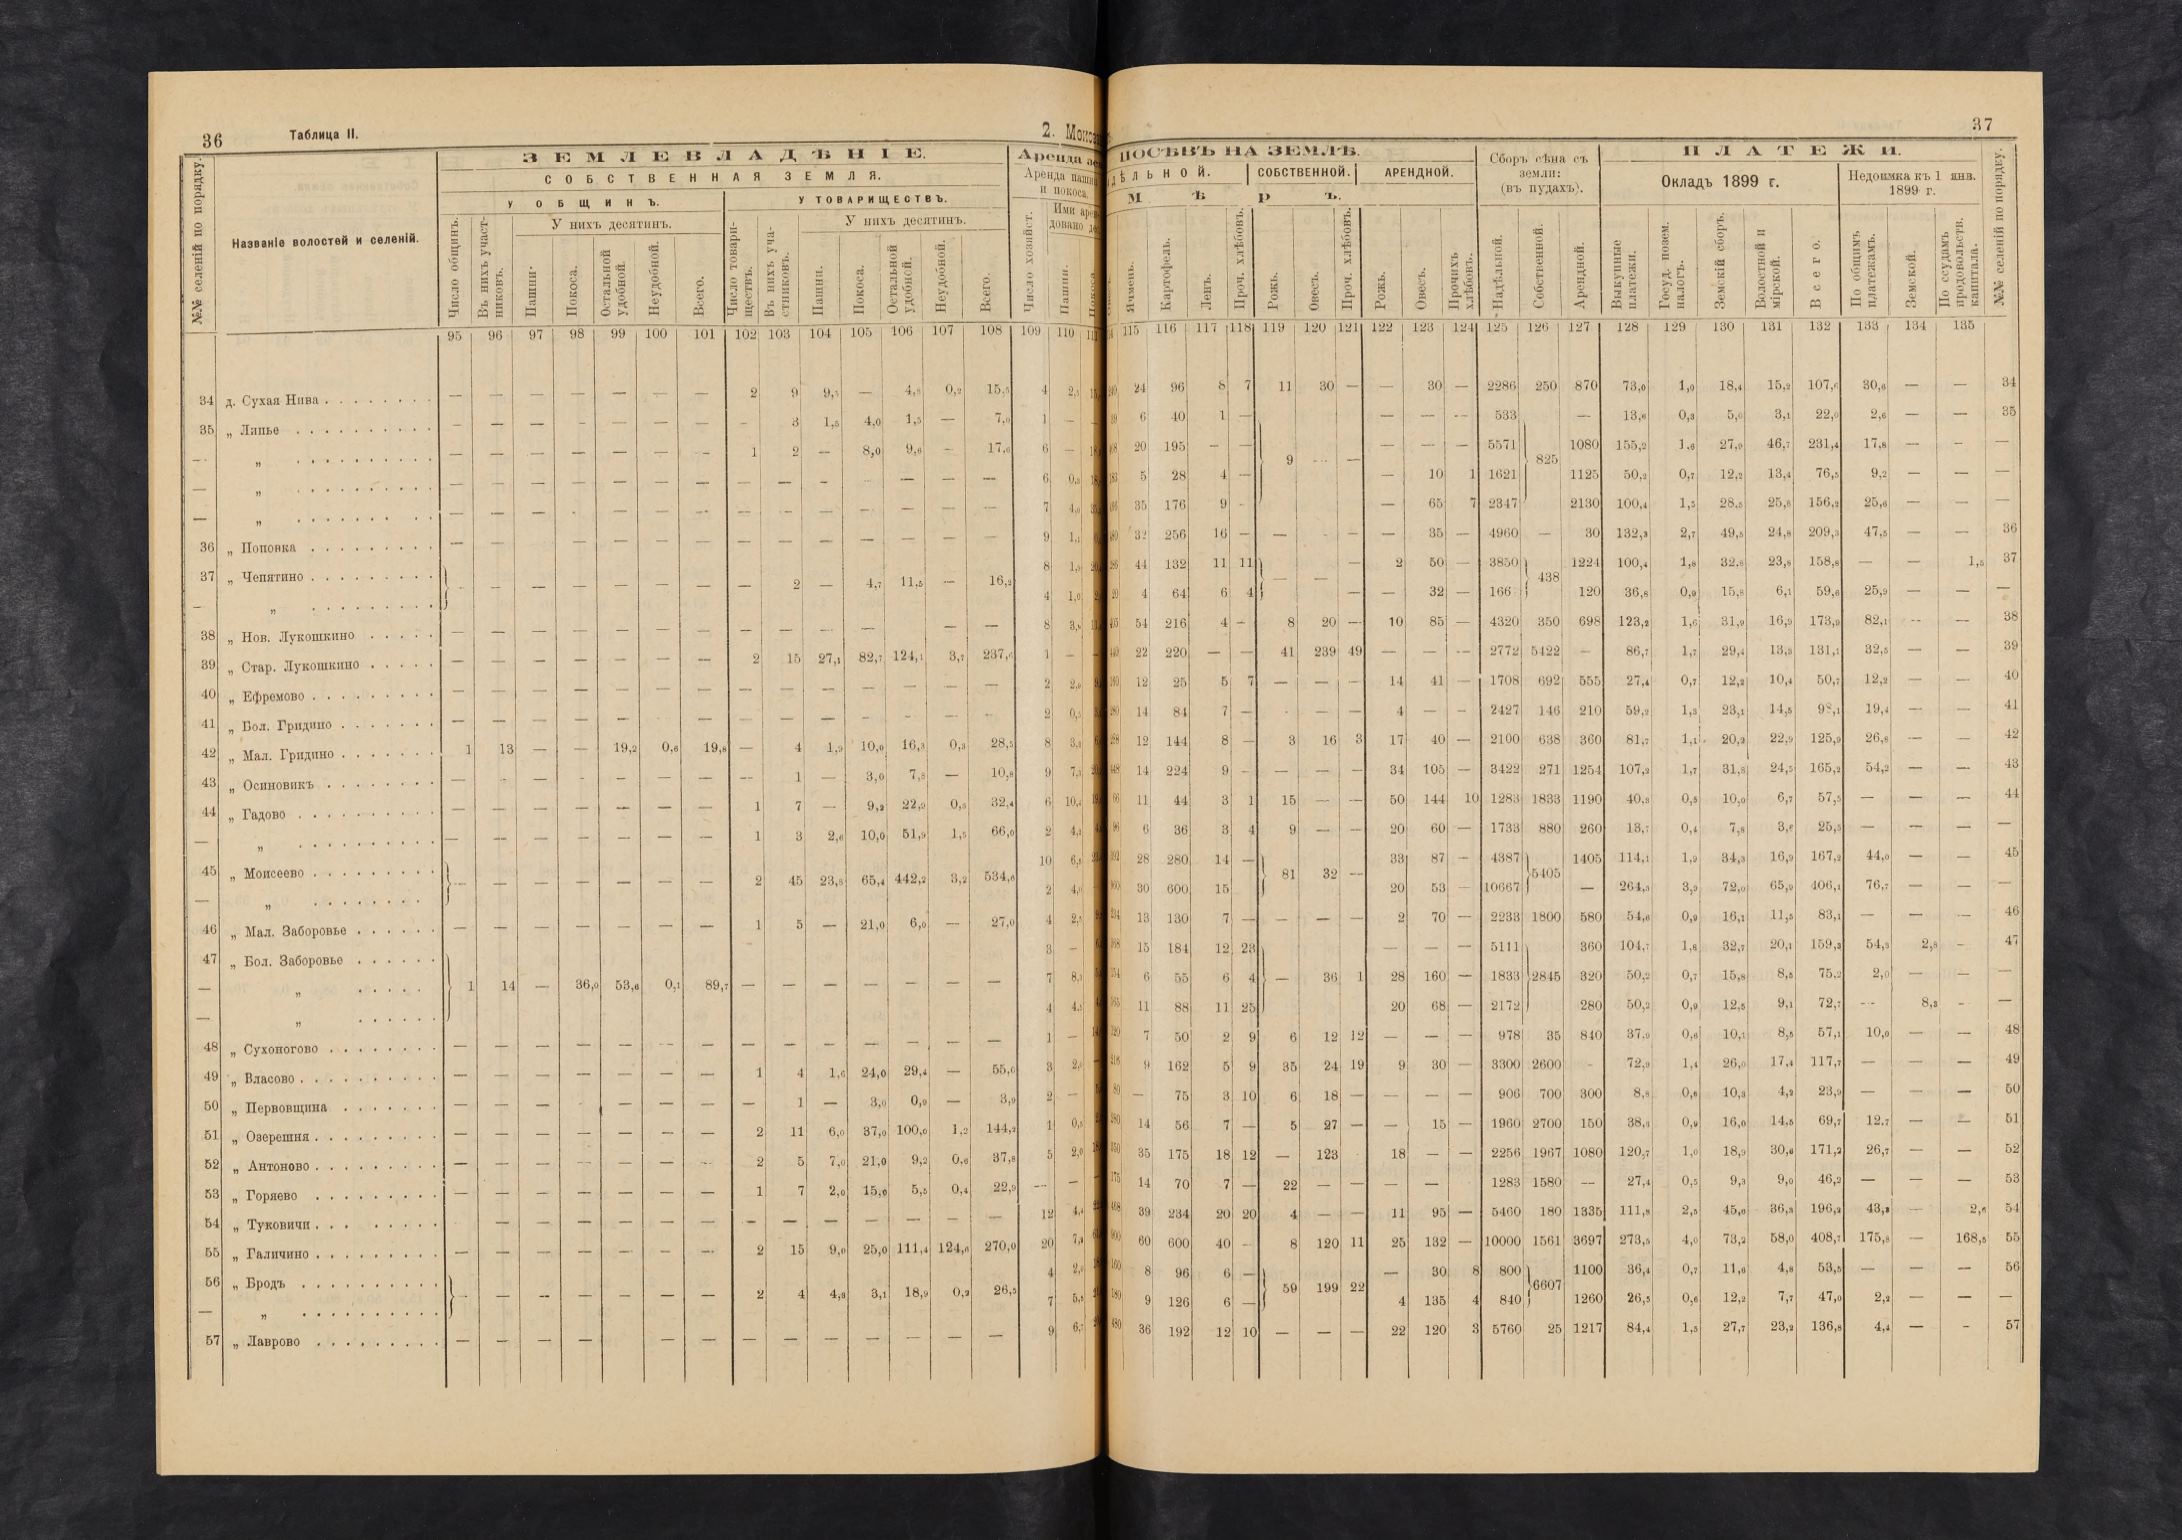 36 Таблица II. 2. Моисе
№№ селеній по порядку.
Названіе волостей и селеній.
ЗЕМЛЕВЛАДѢНІЕ.
СОБСТВЕННАЯ ЗЕМЛЯ.
У ОБЩИНЪ. У ТОВАРИЩЕСТВЪ.
Число общинъ. Въ нихъ участниковъ. У нихъ десятинъ. Пашни. Покоса. Остальной удобной. Неудобной. Всего.
Число товариществъ. Въ нихъ участниковъ. У нихъ десятинъ. Пашни. Покоса. Остальной удобной. Неудобной. Всего.
Аренда зе
Аренда пашни и покоса.
Число хозяйст. Ими арен довано де Пашни.
95 96 97 98 99 100 101 102 103 104 105 106 107 108 109 110
34 д. Сухая Нива — — — — — — — 2 9 — 4,8 0,2 15,5 4
35 „ Липье — — — — — — — - 3 1,5 4,0 1,5 — 7,0 1 —
— „ — — — — — — — 1 2 — 8,0 9,6 — 17,6 6 —
— „ — — — — — — — — — — — — — — 6
— „ — — — — — — — — — — — — — — 7
36 „ Поповка — — — — — — — — — — — — — — 9
37 „ Чепятино — — — — — — — — 2 — 4,7 11,5 — 16,2 8
— „ 4 1,0
38 „ Нов. Лукошкино — — — — — — — — — — — — — 8
39 „ Стар. Лукошкино — — — — — — — 2 15 27,1 82,7 124,1 3,7 237,6 1 —
40 „ Ефремово — — — — — — — — — — — — — — 2
41 „ Бол. Гридино — — — — — — — — — — — — — — 2
42 „ Мал. Гридино 1 13 — — 19,2 0,6 19,8 — 4 1,9 10,0 16,3 0,3 28,5 8
43 „ Осиновикъ — — — — — — — — 1 — 3,0 7,8 — 10,8 9
44 „ Гадово — — — — — — — 1 7 — 9,2 22,9 0,3 32,4 6
— „ — — — — — — — 1 3 2,6 10,0 51,9 1,5 66,0 2
45 „ Моисеево — — — — — — — 2 45 23,8 65,4 442,2 3,2 534,6 10
— „ 2
46 „ Мал. Заборовье — — — — — — — 1 5 — 21,0 6,0 — 27,0 4
47 „ Бол. Заборовье 3 —
— „ 1 14 — 36,0 53,6 0,1 89,7 — — — — — — — 7
— „ 4
48 „ Сухоногово — — — — — — — — — — — — — — 1 —
49 „ Власово — — — — — — — 1 4 1,6 24,0 29,4 — 55,0 3
50 „ Первовщина — — — — — — — — 1 — 3,0 0,9 — 3,9 2 —
51 „ Озерешня — — — — — — — 2 11 6,0 37,0 100,0 1,2 144,2 1
52 „ Антоново — — — — — — — 2 5 7,0 21,0 9,2 0,6 37,8 5 2,0
53 „ Горяево — — — — — — — 1 7 2,0 15,0 5,5 0,4 22,9 — —
54 „ Туковичи — — — — — — — — — — — — — 12 4,4
55 „ Галичино — — — — — — — 2 15 9,0 25,0 111,4 124,6 270,0 20
56 „ Бродъ — — — — — — — 2 4 4,3 3,1 18,9 0,2 26,5 4
— „ 7
57 „ Лаврово — — — — — — — — — — — — — 9 6,7
37
ПОСѢВЪ НА ЗЕМЛѢ. ПЛАТЕЖИ.
ДѢЛЬНОЙ. СОБСТВЕННОЙ. АРЕНДНОЙ.
М Ѣ Р Ъ.
Ячмень. Картофель. Ленъ. Проч. хлѣбовъ. Рожь. Овесъ. Проч. хлѣбовъ. Рожь. Овесъ. Прочихъ хлѣбовъ.
Сборъ сѣна съ земли: (въ пудахъ). Надѣльной. Собственной. Арендной.
Окладъ 1899 г. Выкупные платежи. Госуд. позем. налогъ. Земскій сборъ. Волостной и мірской. Всего.
Недоимка къ 1 янв. 1899 г. По общимъ платежамъ. Земской. По ссудамъ продовольств. капитала.
№№ селеній по порядку.
115 116 117 118 119 120 121 122 123 124 125 126 127 128 129 130 131 132 133 134 135
24 96 8 7 11 30 — — 30 — 2286 250 870 73,0 1,0 18,4 15,2 107,6 30,6 — — 34
6 40 1 — — — — 533 — 13,6 0,3 5,0 3,1 22,0 2,6 — — 35
20 195 — — 9 — — — — — 5571 825 1080 155,2 1,6 27,9 46,7 231,4 17,8 — — —
5 28 4 — — 10 1 1621 1125 50,2 0,7 12,2 13,4 76,5 9,2 — — —
35 176 9 - — 65 7 2347 2130 100,4 1,5 28,5 25,8 156,2 25,6 — — —
32 256 16 — — — — — 35 — 4960 — 30 132,3 2,7 49,5 24,8 209,3 47,5 — — 36
44 132 11 11 — — 2 50 — 3850 438 1224 100,4 1,8 32,8 23,8 158,8 — — 1,5 37
4 64 6 4 — — 32 — 166 120 36,8 0,9 15,8 6,1 59,6 25,9 — — —
54 216 4 — 8 20 — 10 85 — 4320 350 698 123,2 1,6 31,9 16,9 173,9 82,1 — — 38
22 220 — — 41 239 49 — — — 2772 5422 — 86,7 1,7 29,4 13,3 131,1 32,5 — — 39
12 25 5 7 — — — 14 41 — 1708 692 555 27,4 0,7 12,2 10,4 50,7 12,2 — — 40
14 84 7 — — — — 4 — — 2427 146 210 59,2 1,3 23,1 14,5 98,1 19,4 — — 41
12 144 8 — 3 16 3 17 40 — 2100 638 360 81,7 1,1 20,2 22,9 125,9 26,8 — — 42
14 224 9 — — — — 34 105 — 3422 271 1254 107,2 1,7 31,8 24,5 165,2 54,2 — — 43
11 44 3 1 15 — — 50 144 10 1283 1833 1190 40,3 0,5 10,0 6,7 57,5 — — — 44
6 36 3 4 9 — — 20 60 — 1733 880 260 13,7 0,4 7,8 3,6 25,5 — — — —
28 280 14 — 81 32 — 33 87 — 4387 5405 1405 114,1 1,9 34,3 16,9 167,2 44,0 — — 45
30 600 15 20 53 — 10667 — 264,3 3,9 72,0 65,9 406,1 76,7 — — —
13 130 7 — — — — 2 70 — 2233 1800 580 54,6 0,9 16,1 11,5 83,1 — — — 46
15 184 12 23 — — — 5111 360 104,7 1,8 32,7 20,1 159,3 54,3 2,8 - 47
6 55 6 4 — 36 1 28 160 — 1833 2845 320 50,2 0,7 15,8 8,5 75,2 2,0 — — —
11 88 11 25 20 68 — 2172 280 50,2 0,9 12,5 9,1 72,7 — 8,3 - —
7 50 2 9 6 12 12 — — — 978 35 840 37,9 0,6 10,1 8,5 57,1 10,0 — — 48
9 162 5 9 35 24 19 9 30 — 3300 2600 - 72,9 1,4 26,0 17,4 117,7 — — — 49
— 75 3 10 6 18 — — — — 906 700 300 8,8 0,6 10,3 4,2 23,9 — — — 50
14 56 7 — 5 27 — — 15 — 1960 2700 150 0,9 16,0 14,5 69,7 12,7 — — 51
35 175 18 12 — 123 18 — — 2256 1967 1080 120,7 1,0 18,9 30,6 171,2 26,7 — — 52
14 70 7 — 22 — — — — 1283 1580 — 27,4 0,5 9,3 9,0 46,2 — — — 53
39 234 20 20 4 — — 11 95 — 5460 180 1335 111,8 2,5 45,0 36,3 196,2 43,3 — 2,6 54
60 600 40 - 8 120 11 25 132 — 10000 1561 3697 273,5 4,0 73,2 58,0 408,7 175,8 — 168,5 55
8 96 6 — 59 199 22 — 30 8 800 6607 1100 36,4 0,7 11,6 4,8 53,5 — — — 56
9 126 6 — 4 135 4 840 1260 26,5 0,6 12,2 7,7 47,0 2,2 — — —
36 192 12 10 — — — 22 120 3 5760 25 1217 84,4 1,5 27,7 23,2 136,8 4,4 — - 57